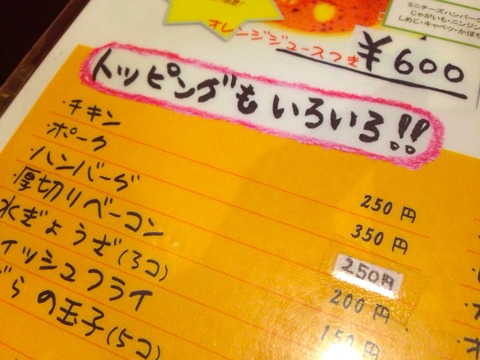 ミニチーズハンバーグ
じゃがいも・ニンジン
しめじ・キャベツ・かぼち
オレンジジュースつき ¥600
トッピングもいろいろ!!
・チキン 250円
・ポーク 350円
・ハンバーグ 250円
・厚切りベーコン 200円
水ぎょうざ(3コ) 150円
ィッシュフライ
ずらの玉子(5コ)